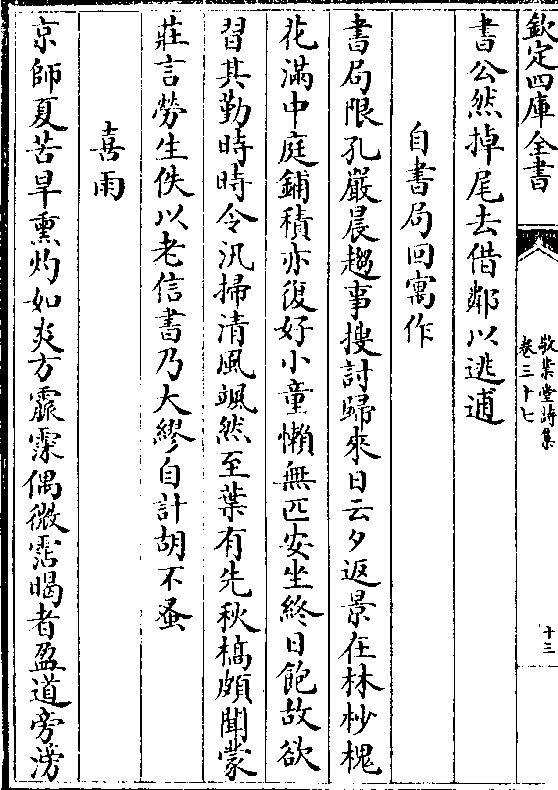 欽定四庫全書
敬業堂詩集
卷三十七
十三
書公然掉尾去借鄰以逃逋
自書局回寓作
書局限孔嚴晨趨事搜討歸來日云夕返景在林杪槐
花滿中庭鋪積亦復好小童懶無匹安坐終日飽故欲
習其勤時時令汛掃清風颯然至葉有先秋槁頗聞蒙
莊言勞生佚以老信書乃大繆自計胡不蚤
喜雨
京師夏苦旱熏灼如炎方霢霂偶微霑暍者盈道旁滂